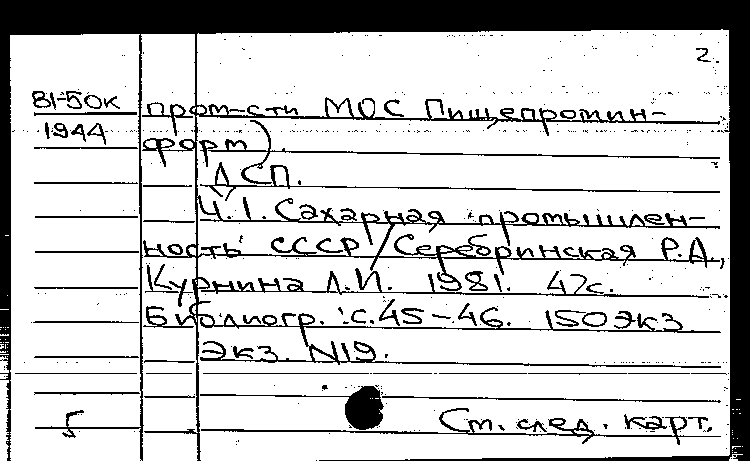 2.
81-50К пром-сти МОС Пищепромин-
1944 форм).
ДСП.
Ч.1. Сахарная промышлен-
ность СССР / Серебринская Р.Д.,
Курнина Л.И. 1981. 47с.
Библиогр.: с.45-46. 150 экз.
Экз. N19.
5 Ст. след. карт.